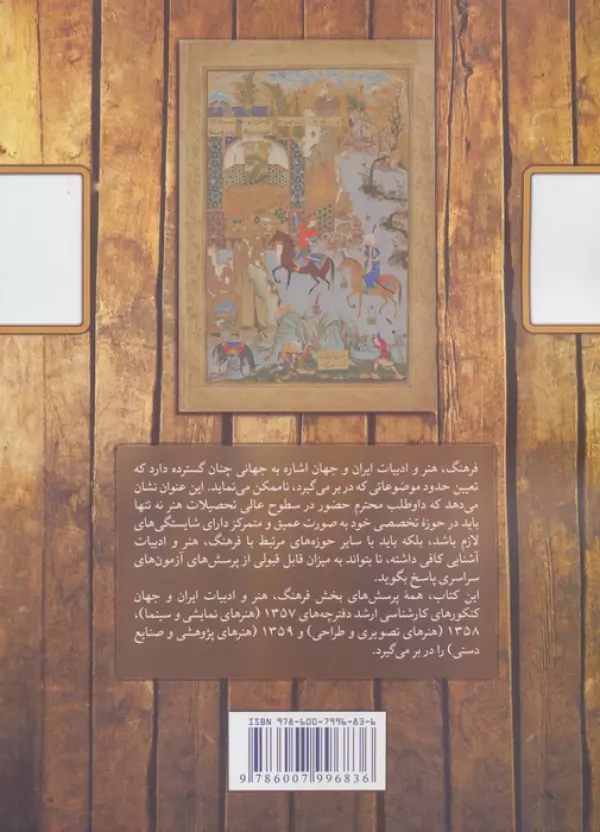 فرهنگ، هنر و ادبیات ایران و جهان اشاره به جهانی چنان گسترده دارد که
تعیین حدود موضوعاتی که در بر می‌گیرد، ناممکن می‌نماید. این عنوان نشان
می‌دهد که داوطلب محترم حضور در سطوح عالی تحصیلات هنر نه تنها
باید در حوزهٔ تخصصی خود به صورت عمیق و متمرکز دارای شایستگی‌های
لازم باشد، بلکه باید با سایر حوزه‌های مرتبط با فرهنگ، هنر و ادبیات
آشنایی کافی داشته، تا بتواند به میزان قابل قبولی از پرسش‌های آزمون‌های
سراسری پاسخ بگوید.
این کتاب، همهٔ پرسش‌های بخش فرهنگ، هنر و ادبیات ایران و جهان
کنکورهای کارشناسی ارشد دفترچه‌های ۱۳۵۷ (هنرهای نمایشی و سینما)،
۱۳۵۸ (هنرهای تصویری و طراحی) و ۱۳۵۹ (هنرهای پژوهشی و صنایع
دستی) را در بر می‌گیرد.
ISBN 978-600-7996-83-6
9 786007 996836